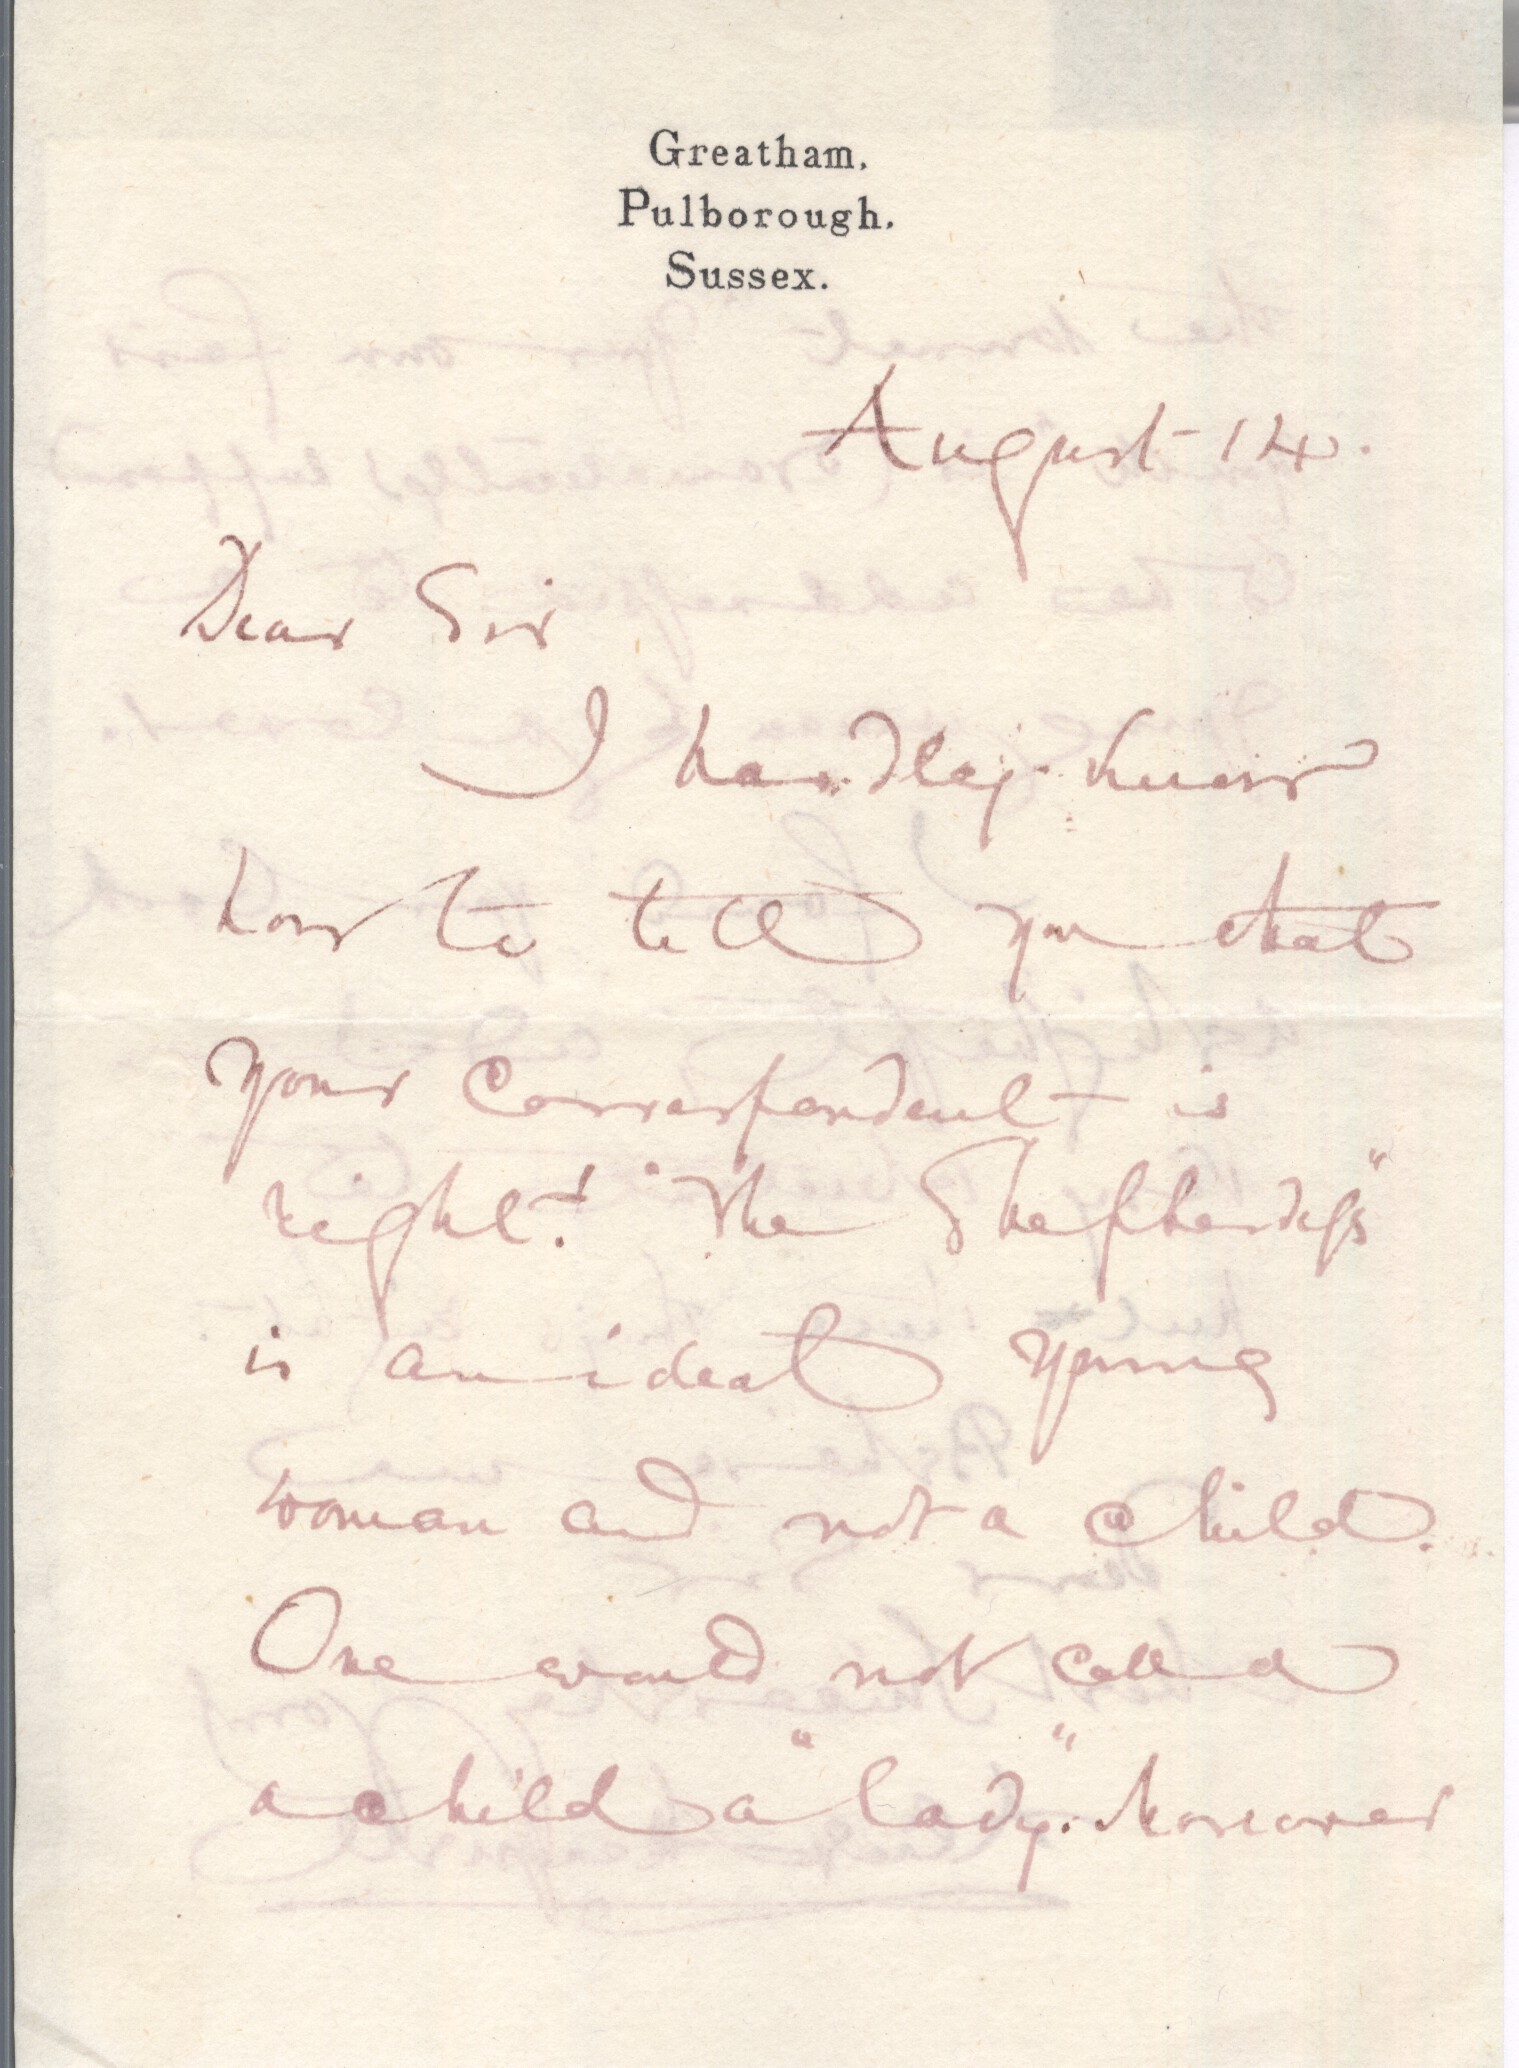 Greatham,
Pulborough,
Sussex.
August 14.
Dear Sir
I hardly know
how to tell you that
your correspondent is
right! "The Shepherdess"
is an ideal young
woman and not a child.
One would not call a
a child a "lady". Moreover